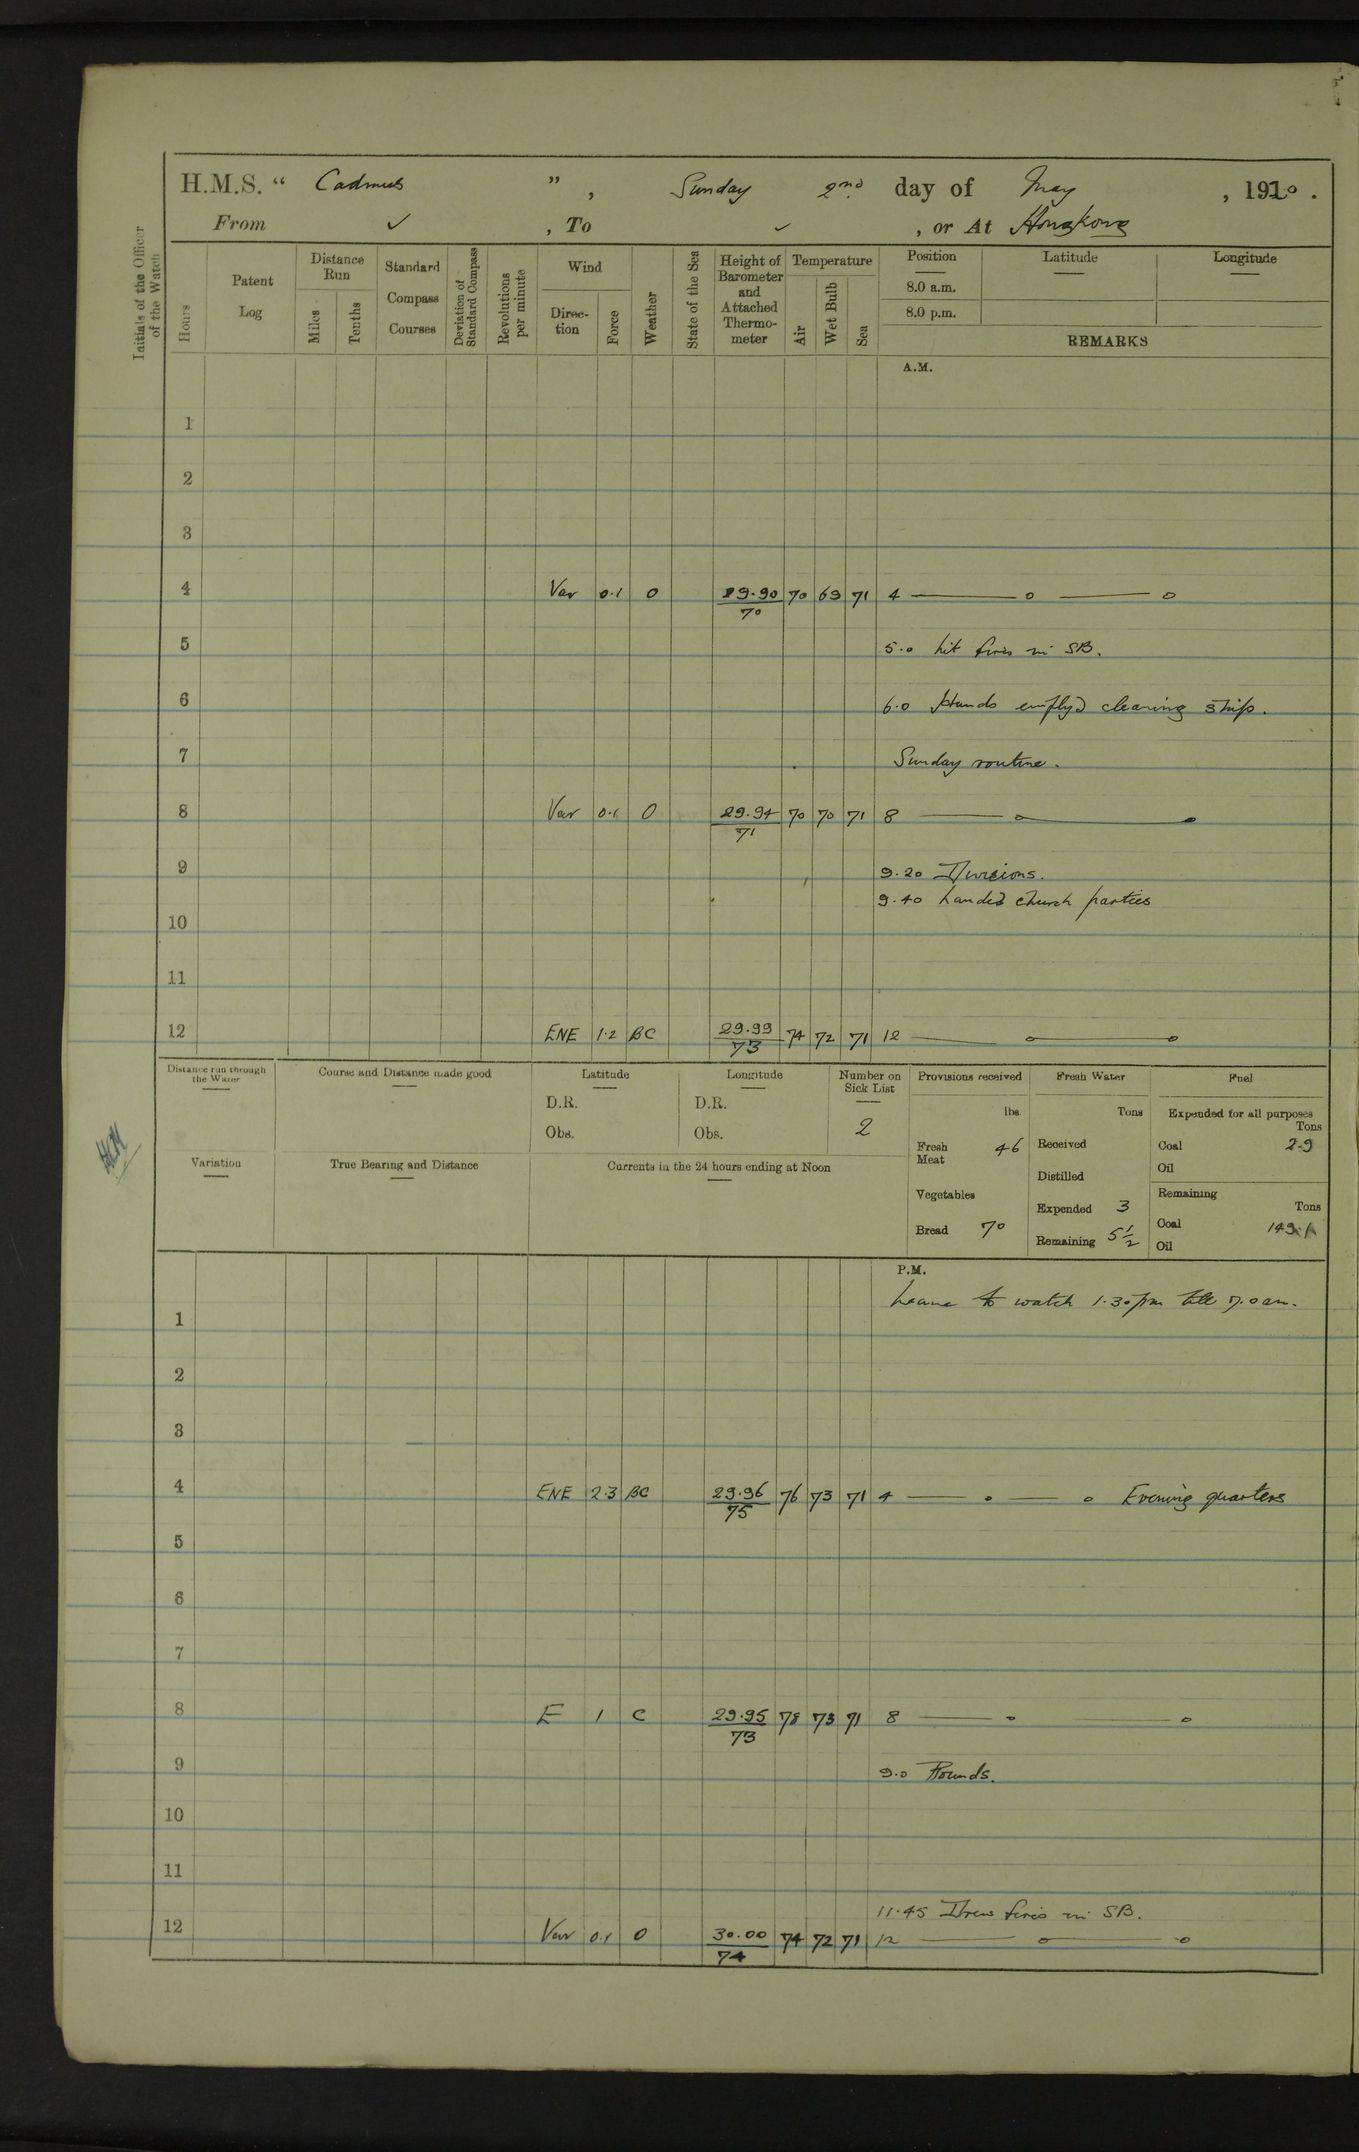 H.M.S. " Cadmus ", Sunday 2nd. day of May, 1920.
From ✓, To ✓, or At Hongkong
Initials of the Officer of the Watch
Hours
Patent Log
Distance Run
Miles
Tenths
Standard Compass Courses
Deviation of Standard Compass
Revolutions per minute
Wind
Direction
Force
Weather
State of the Sea
Height of Barometer and Attached Thermometer
Temperature
Air
Wet Bulb
Sea
Position
8.0 a.m.
8.0 p.m.
Latitude
Longitude
REMARKS
A.M.
1
2
3
4 Var 0.1 O 29.90/70 70 69 71 4
5 5.0 Lit fires in SB.
6 6.0 Hands employd cleaning ship.
7 Sunday routine.
8 Var 0.1 O 29.94/71 70 70 71 8
9 9.20 Divisions.
9.40 Landed church parties
10
11
12 ENE 1.2 BC 29.99/73 74 72 71 12
Distance run through the Water
Course and Distance made good
Latitude
D.R.
Obs.
Longitude
D.R.
Obs.
Number on Sick List
2
Provisions received
lbs.
Fresh Meat 46
Vegetables
Bread 70
Fresh Water
Tons
Received
Distilled
Expended 3
Remaining 5½
Fuel
Expended for all purposes
Tons
Coal 2.9
Oil
Remaining
Tons
Coal 149.1
Oil
Variation
True Bearing and Distance
Currents in the 24 hours ending at Noon
P.M.
1 Leave to watch 1.30pm till 7.0am.
2
3
4 ENE 2.3 BC 29.96/75 76 73 71 4 Evening quarters
5
6
7
8 E 1 C 29.95/73 78 73 71 8
9 9.0 Rounds.
10
11
11.45 Drew fires in SB.
12 Var 0.1 O 30.00/74 74 72 71 12